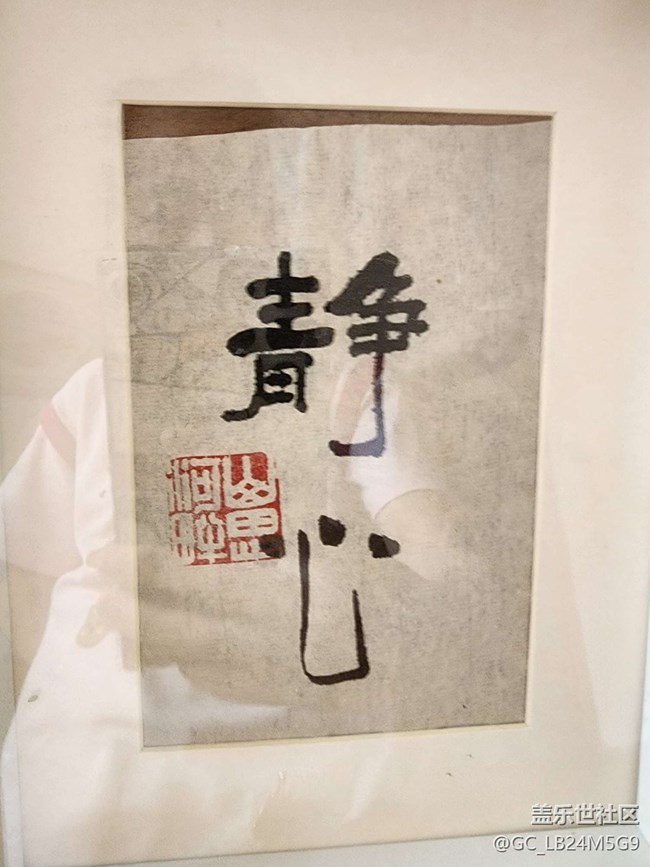 静
心
盖乐世社区
@GC_LB24M5G9